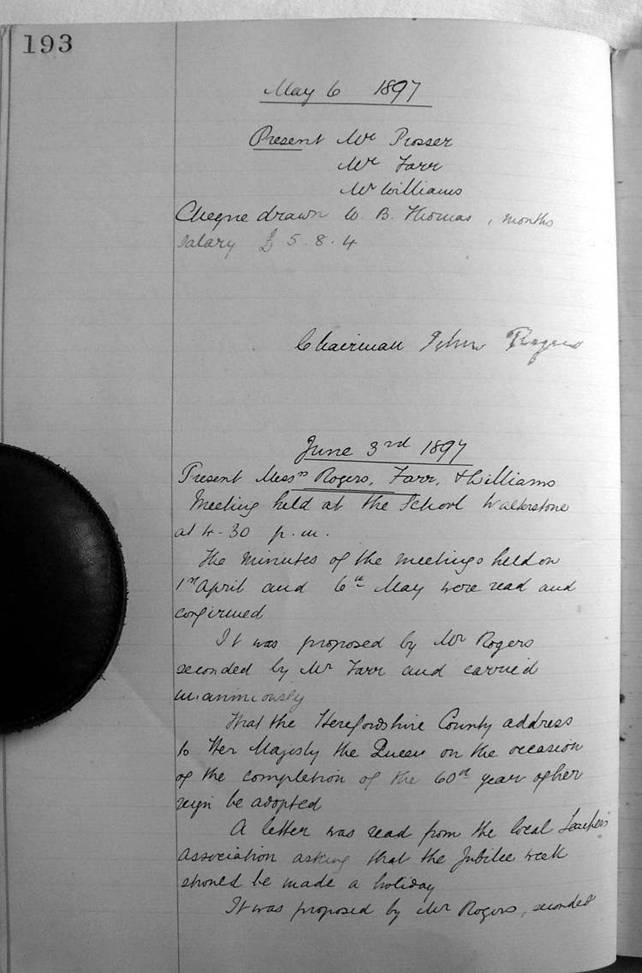 193
May 6 1897
Present Mr Prosser
Mr Farr
Mr Williams
Cheque drawn W. B. Thomas, months
salary £ 5. 8. 4
Chairman John Rogers
June 3rd 1897
Present Messrs Rogers, Farr, & Williams
Meeting held at the School Walterstone
at 4.30 p.m.
The minutes of the meetings held on
1st April and 6th May were read and
confirmed
It was proposed by Mr Rogers
seconded by Mr Farr and carried
unanimously
That the Herefordshire County address
to Her Majesty the Queen on the occasion
of the completion of the 60th year of her
reign be adopted
A letter was read from the local Teachers
Association asking that the Jubilee week
should be made a holiday
It was proposed by Mr Rogers, seconded